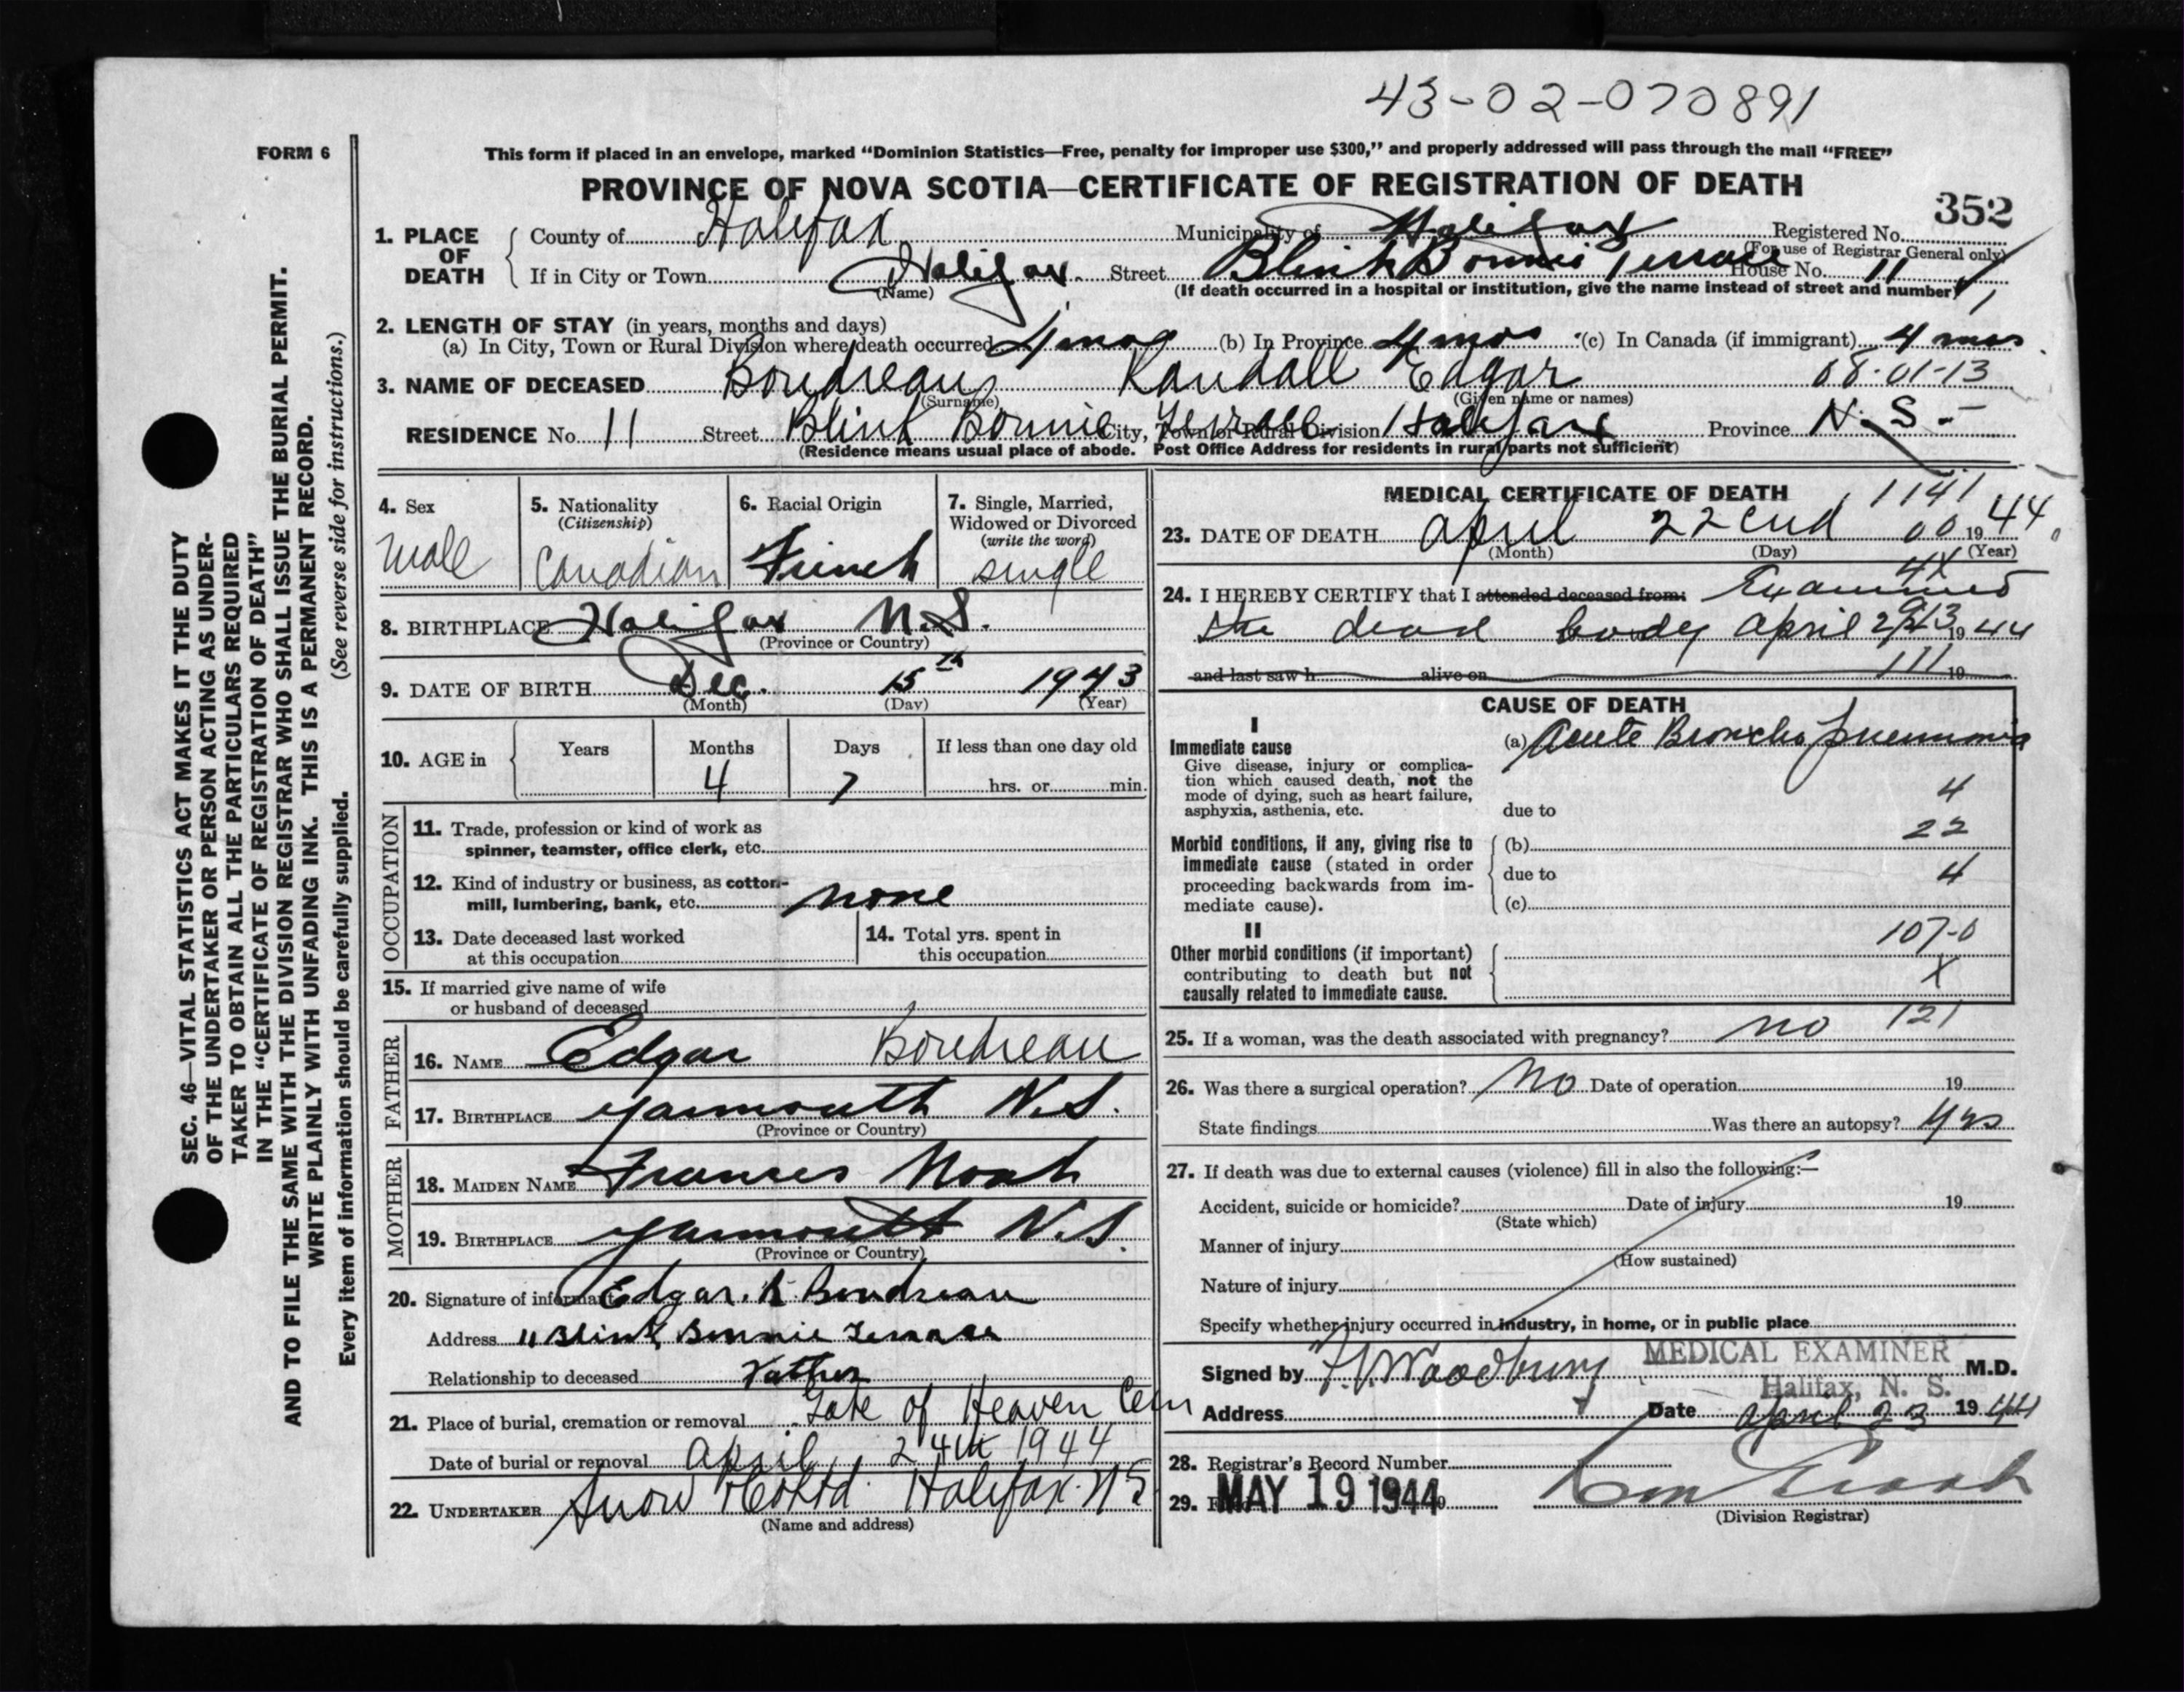 43-02-070891
FORM 6
This form if placed in an envelope, marked "Dominion Statistics—Free, penalty for improper use $300," and properly addressed will pass through the mail "FREE"
PROVINCE OF NOVA SCOTIA—CERTIFICATE OF REGISTRATION OF DEATH
352
1. PLACE OF DEATH
County of Halifax Municipality of Halifax Registered No.
(For use of Registrar General only)
If in City or Town Halifax. Street Blink Bonnie Terrace House No. 11
(Name) (If death occurred in a hospital or institution, give the name instead of street and number)
2. LENGTH OF STAY (in years, months and days)
(a) In City, Town or Rural Division where death occurred 4 mos (b) In Province 4 mos (c) In Canada (if immigrant) 4 mos
3. NAME OF DECEASED Boudreau Randall Edgar 08-01-13
(Surname) (Given name or names)
RESIDENCE No. 11 Street Blink Bonnie Terrace City, Town or Rural Division Halifax Province N.S.-
(Residence means usual place of abode. Post Office Address for residents in rural parts not sufficient)
4. Sex
male
5. Nationality
(Citizenship)
Canadian
6. Racial Origin
French
7. Single, Married,
Widowed or Divorced
(write the word)
single
8. BIRTHPLACE Halifax N.S.
(Province or Country)
9. DATE OF BIRTH Dec. 15th 1943
(Month) (Day) (Year)
10. AGE in
Years Months Days If less than one day old
4 7 hrs. or min.
OCCUPATION
11. Trade, profession or kind of work as
spinner, teamster, office clerk, etc.
12. Kind of industry or business, as cotton-
mill, lumbering, bank, etc. none
13. Date deceased last worked
at this occupation
14. Total yrs. spent in
this occupation
15. If married give name of wife
or husband of deceased
FATHER
16. NAME Edgar Boudreau
17. BIRTHPLACE Yarmouth N.S.
(Province or Country)
MOTHER
18. MAIDEN NAME Frances
19. BIRTHPLACE Yarmouth N.S.
(Province or Country)
20. Signature of informant Edgar. R. Boudreau
Address 11 Blink Bonnie Terrace
Relationship to deceased Father
21. Place of burial, cremation or removal Gate of Heaven Cem
Date of burial or removal April 24th 1944
22. UNDERTAKER Snow & Co Ltd. Halifax. N S
(Name and address)
MEDICAL CERTIFICATE OF DEATH
1141
23. DATE OF DEATH April 22 00 1944
(Month) (Day) (Year)
4X
24. I HEREBY CERTIFY that I attended deceased from: Examined
the dead body April 23 1944
and last saw h alive on 19
111
CAUSE OF DEATH
I
Immediate cause
Give disease, injury or complica-
tion which caused death, not the
mode of dying, such as heart failure,
asphyxia, asthenia, etc.
(a) Acute Broncho pneumonia
4
due to
22
Morbid conditions, if any, giving rise to
immediate cause (stated in order
proceeding backwards from im-
mediate cause).
(b)
due to 4
(c)
II
Other morbid conditions (if important)
contributing to death but not
causally related to immediate cause.
107-0
X
121
25. If a woman, was the death associated with pregnancy? no
26. Was there a surgical operation? No Date of operation 19
State findings Was there an autopsy? yes
27. If death was due to external causes (violence) fill in also the following:—
Accident, suicide or homicide? Date of injury 19
(State which)
Manner of injury
(How sustained)
Nature of injury
Specify whether injury occurred in industry, in home, or in public place
Signed by Woodbury MEDICAL EXAMINER M.D.
Halifax, N. S.
Address Date April 23 1944
28. Registrar's Record Number
29. MAY 19 1944
(Division Registrar)
SEC. 46—VITAL STATISTICS ACT MAKES IT THE DUTY
OF THE UNDERTAKER OR PERSON ACTING AS UNDER-
TAKER TO OBTAIN ALL THE PARTICULARS REQUIRED
IN THE "CERTIFICATE OF REGISTRATION OF DEATH"
AND TO FILE THE SAME WITH THE DIVISION REGISTRAR WHO SHALL ISSUE THE BURIAL PERMIT.
WRITE PLAINLY WITH UNFADING INK. THIS IS A PERMANENT RECORD.
Every item of information should be carefully supplied. (See reverse side for instructions.)